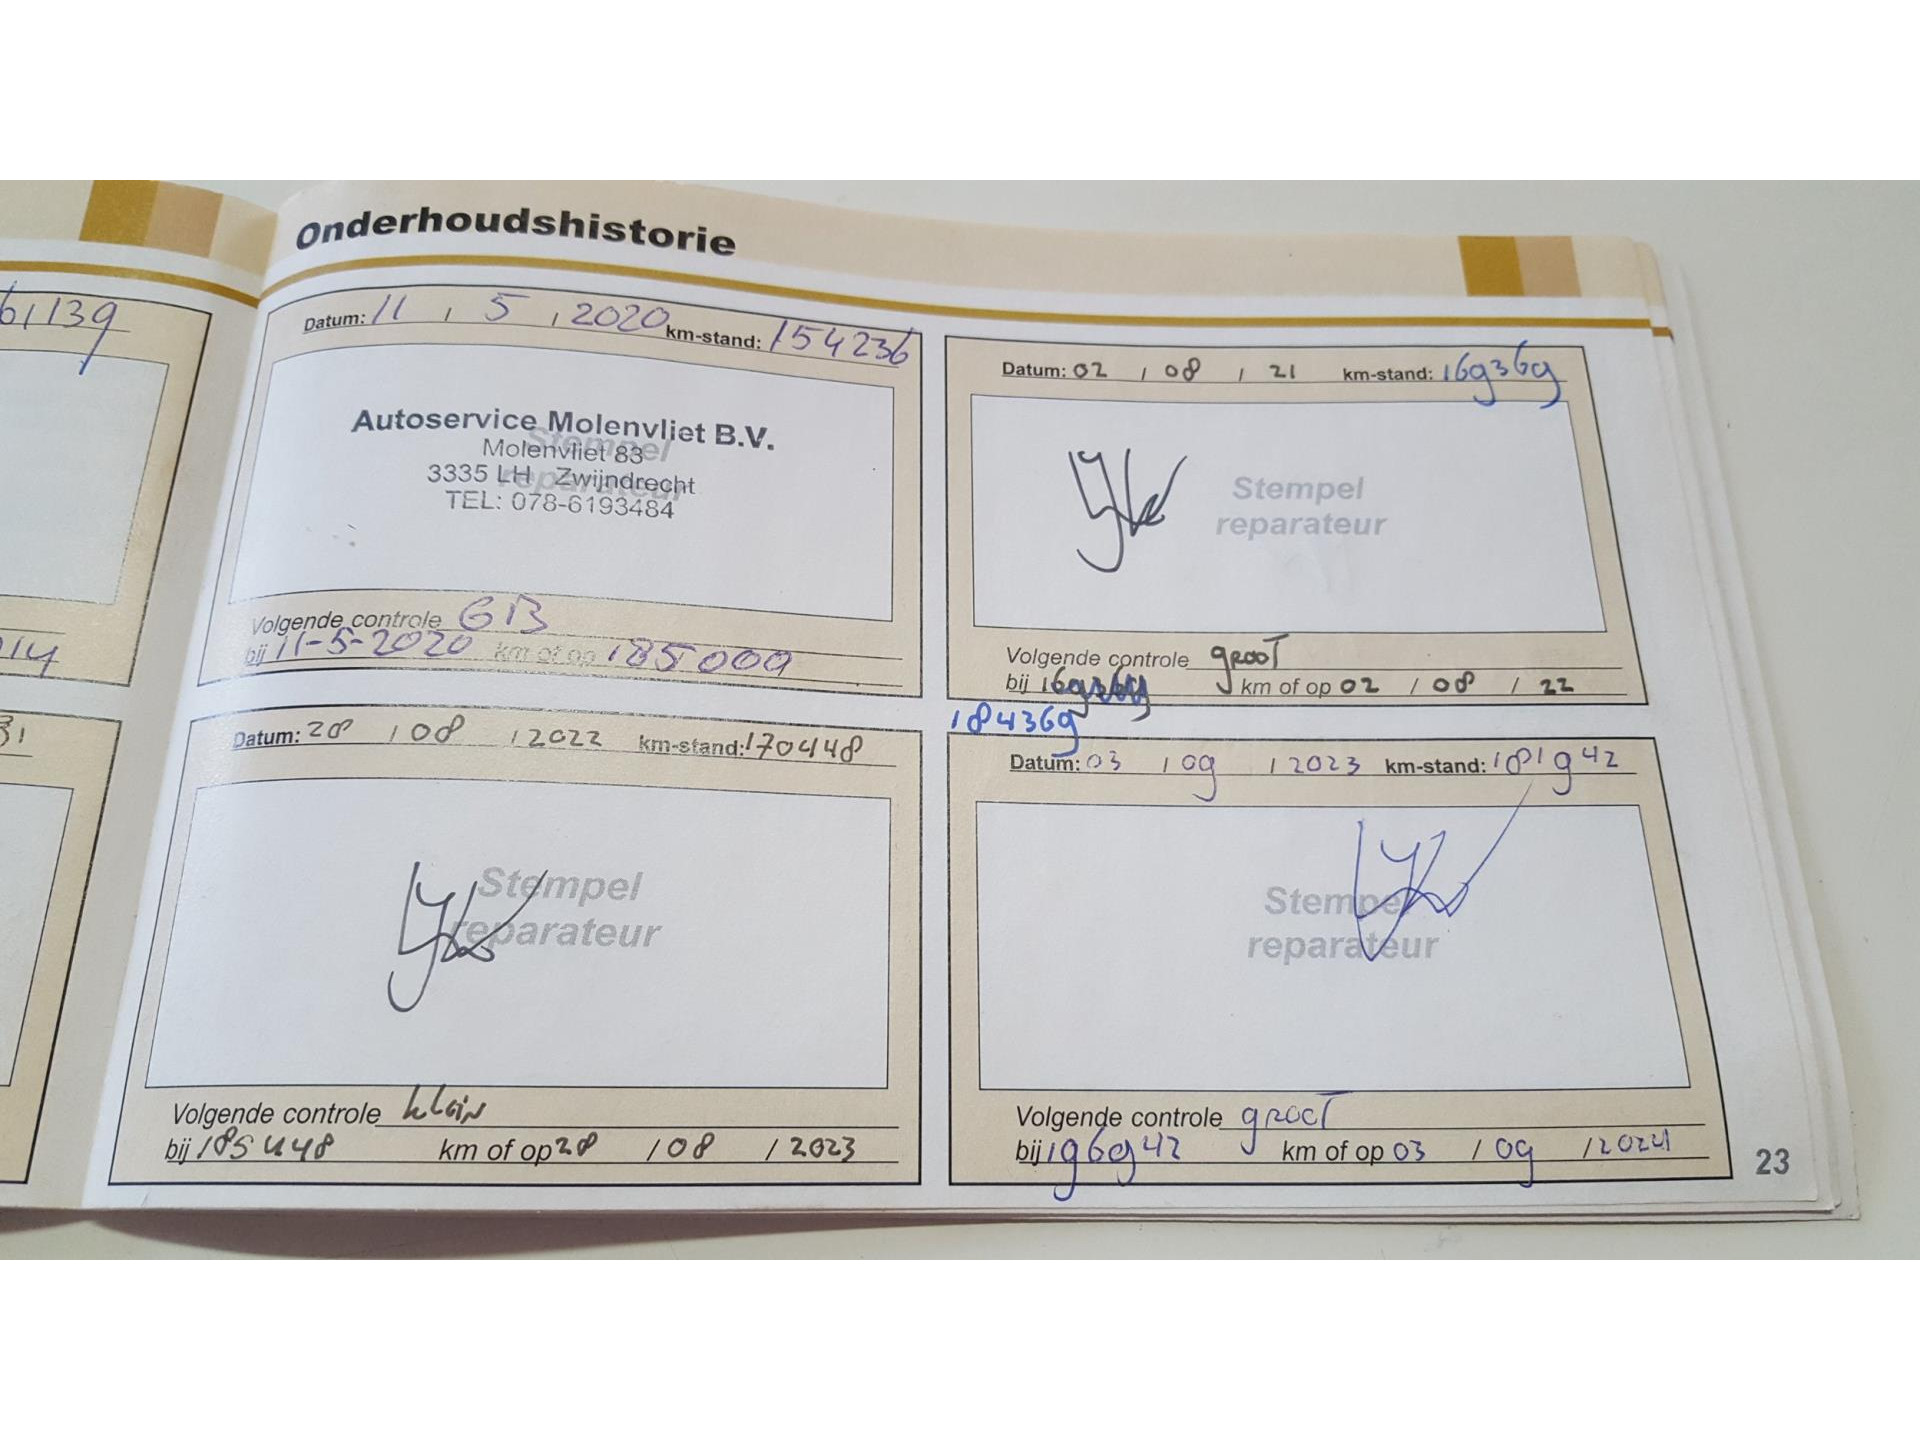 61139
14
31
Onderhoudshistorie
Datum: 11 , 5 , 2020 km-stand: 154236
Autoservice Molenvliet B.V.
Molenvliet 83
3335 LH Zwijndrecht
TEL: 078-6193484
Stempel
reparateur
Volgende controle GB
bij 11-5-2020 km of op 185000
Datum: 02 / 08 / 21 km-stand: 169369
Stempel
reparateur
Volgende controle groot
bij 169369 km of op 02 / 08 / 22
184369
Datum: 28 / 08 / 2022 km-stand: 170448
Stempel
reparateur
Volgende controle klein
bij 185448 km of op 28 / 08 / 2023
Datum: 03 / 09 / 2023 km-stand: 181942
Stempel
reparateur
Volgende controle groot
bij 196942 km of op 03 / 09 / 2024
23